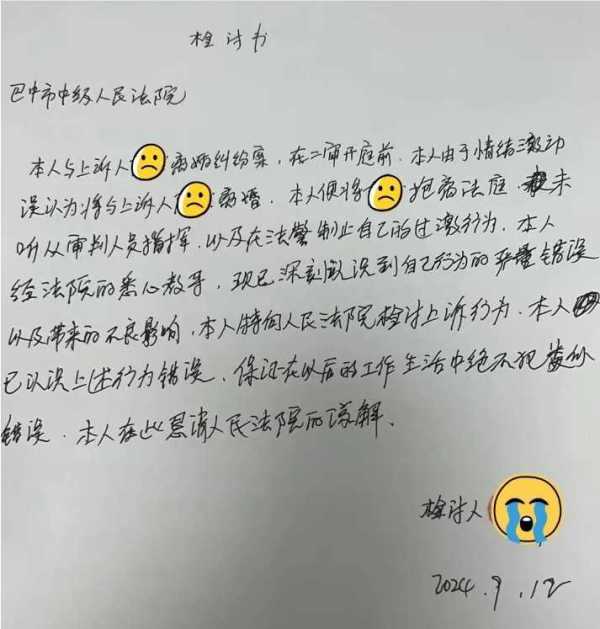 检讨书
巴中市中级人民法院
本人与上诉人 离婚纠纷案，在二审开庭前，本人由于情绪激动
误认为将与上诉人 离婚。本人便将 抱离法庭，未
听从审判人员指挥，以及在法警制止自己的过激行为。本人
经法院的悉心教导，现已深刻认识到自己行为的严重错误
以及带来的不良影响，本人特向人民法院检讨上诉行为。本人
已认识上述行为错误，保证在以后的工作生活中绝不犯类似
错误。本人在此恳请人民法院的谅解。
检讨人
2024.9.12